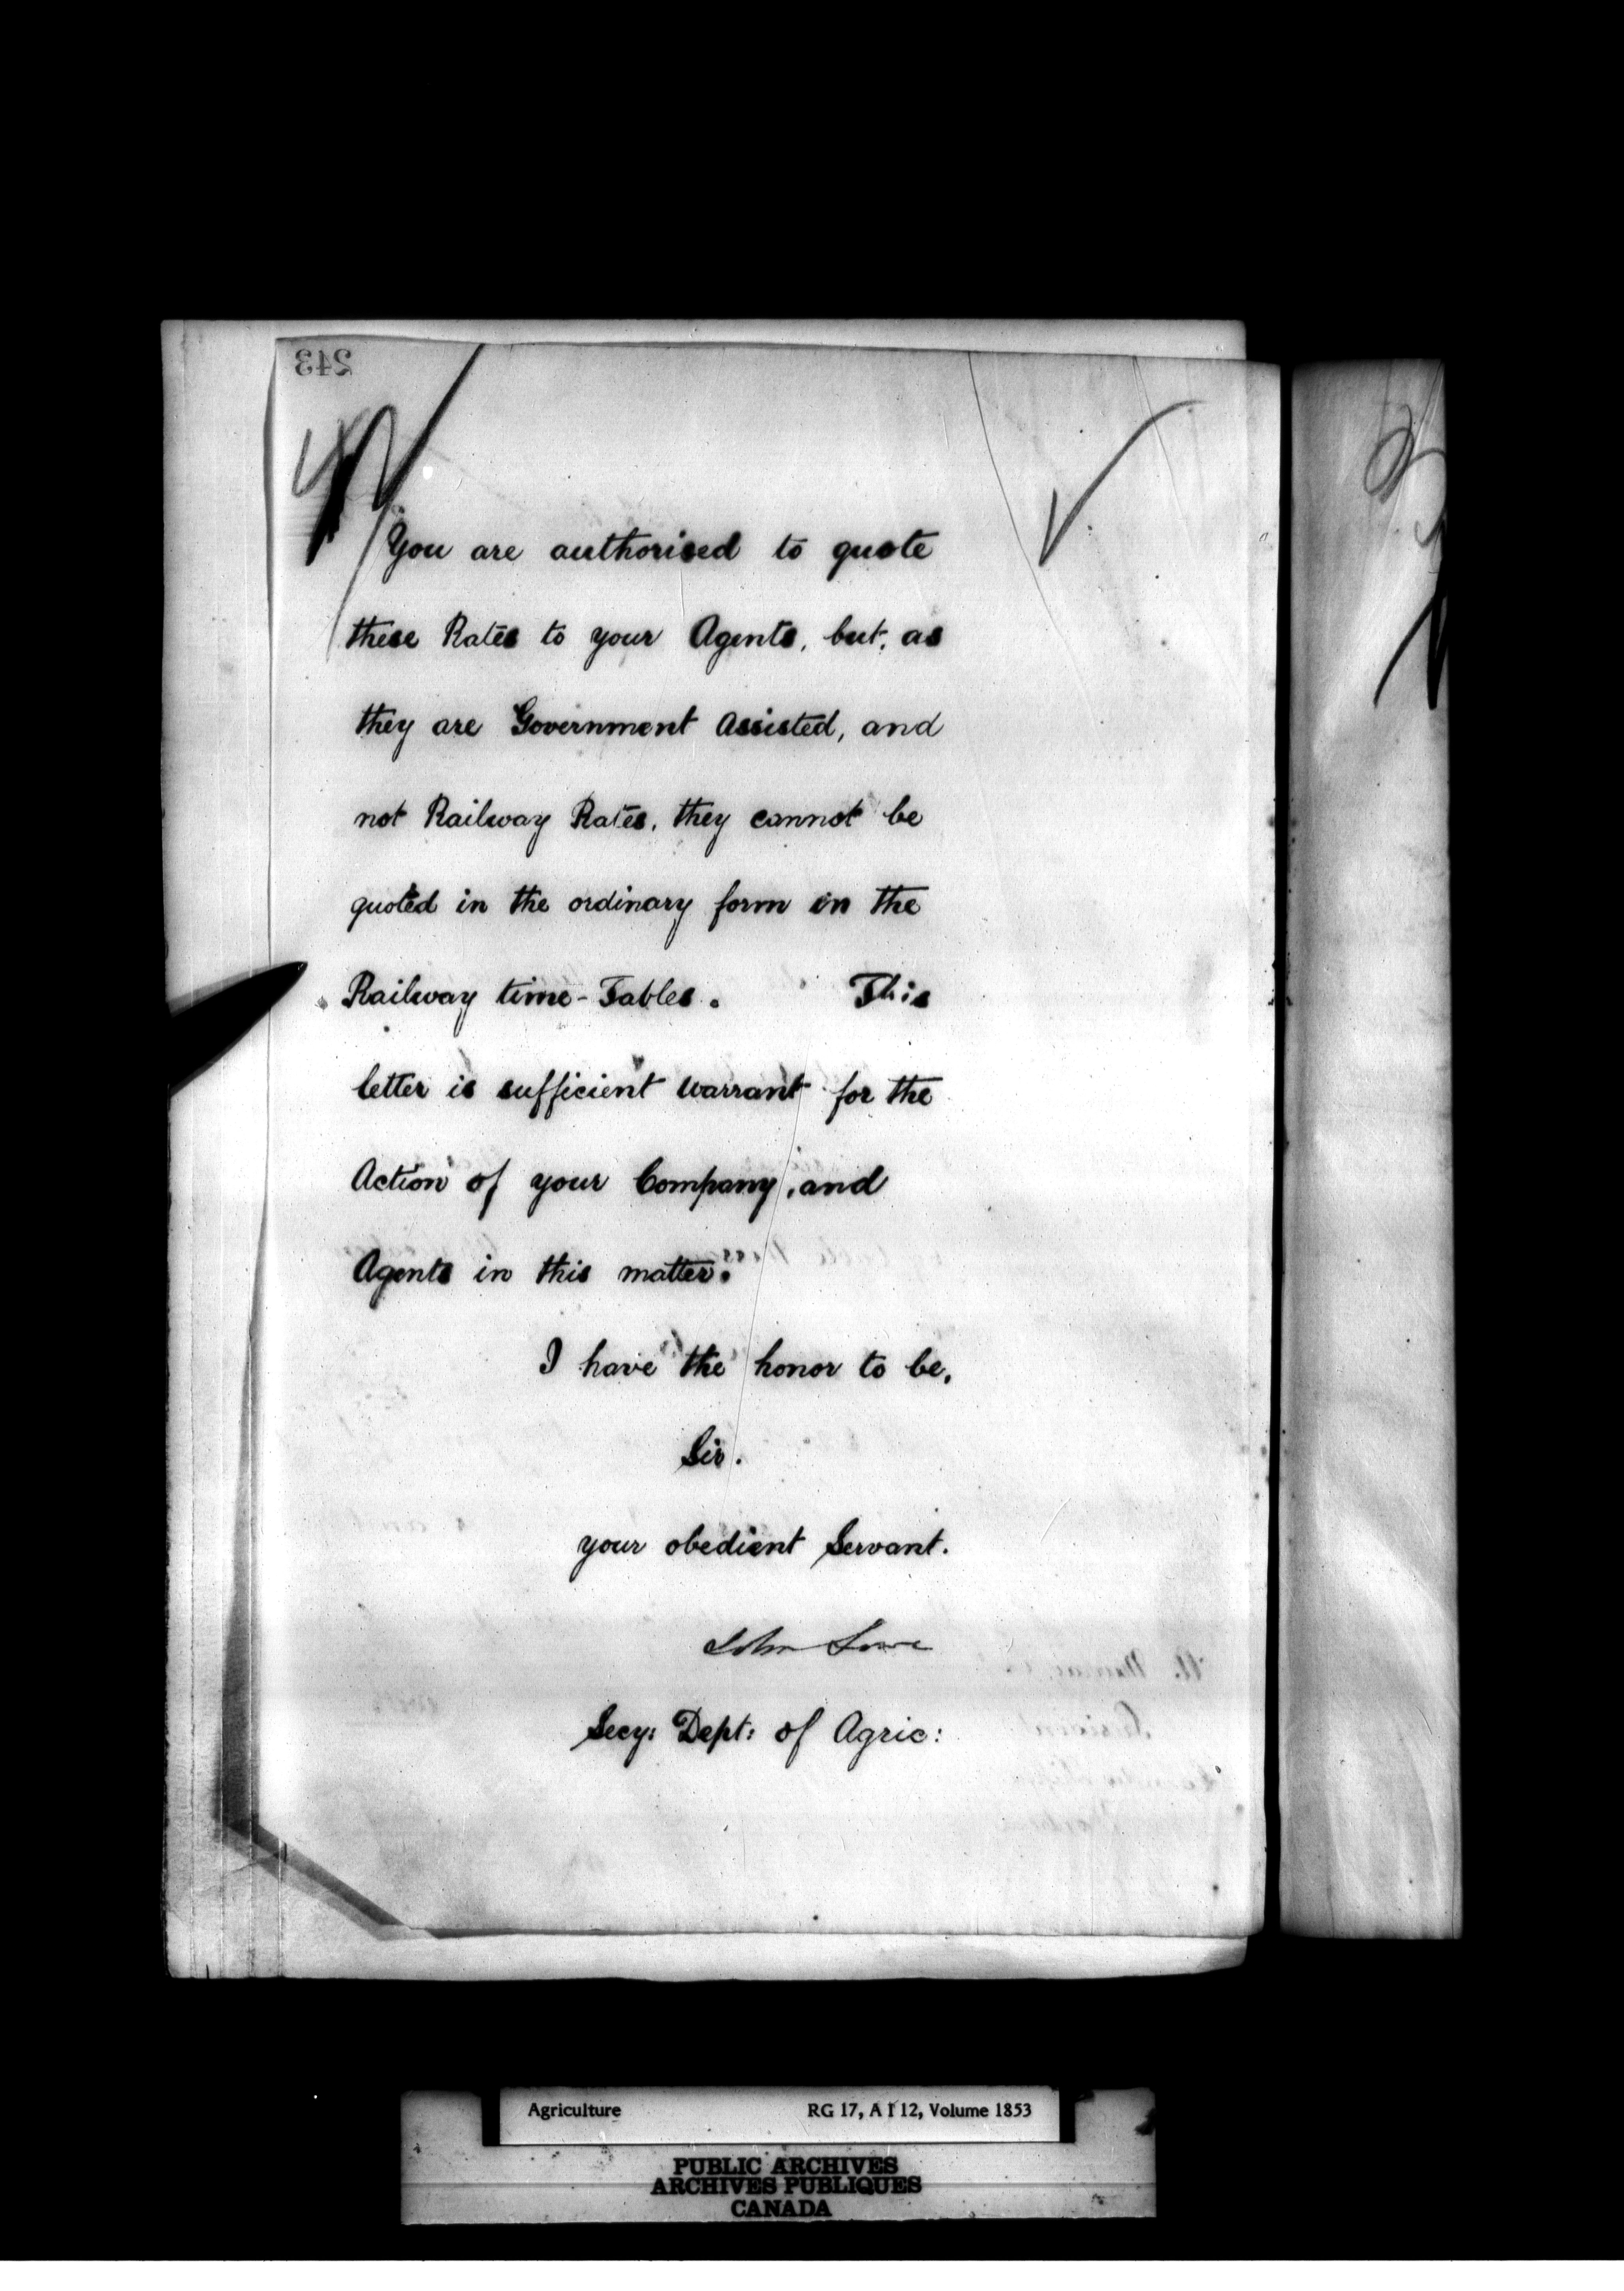 243
You are authorised to quote
these Rates to your Agents, but, as
they are Government Assisted, and
not Railway Rates, they cannot be
quoted in the ordinary form in the
Railway time-Tables. This
letter is sufficient warrant for the
Action of your Company, and
Agents in this matter.
I have the honor to be,
Sir.
your obedient Servant.
John Lowe
Secy: Dept: of Agric:
Agriculture RG 17, A I 12, Volume 1853
PUBLIC ARCHIVES
ARCHIVES PUBLIQUES
CANADA